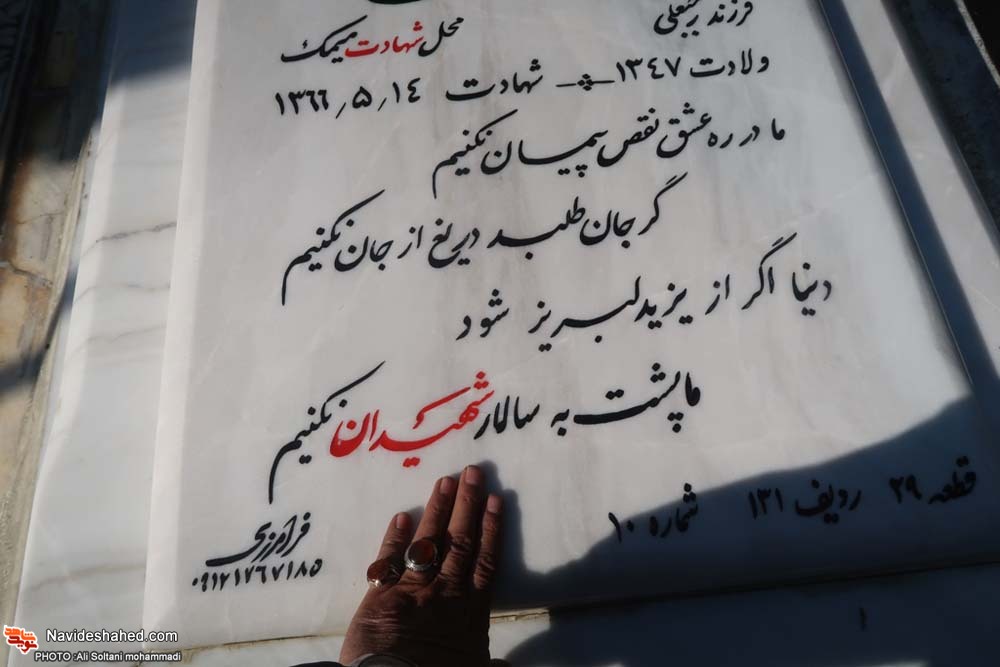 فرزند
محل شهادت میمک
ولادت ۱۳۴۷ شهادت ۱۴٫۵٫۱۳۶۶
ما در ره عشق نقص پیمان نکنیم
گر جان طلبد دریغ از جان نکنیم
دنیا اگر از یزید لبریز شود
ما پشت به سالار شهیدان نکنیم
قطعه ۲۹ ردیف ۱۳۱ شماره ۱۰
فرامرزی
۰۹۱۲۱۷۶۷۱۸۵
۱
شاهد
نوید
Navideshahed.com
PHOTO :Ali Soltani mohammadi